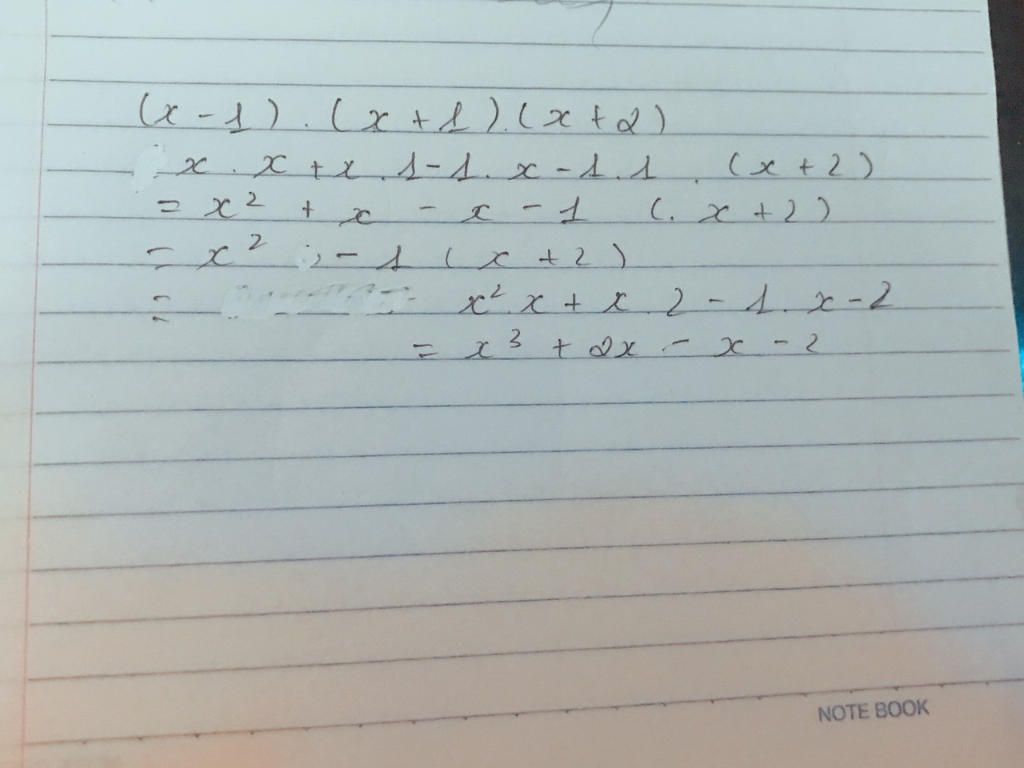 (x - 1) . (x + 1).(x + 2)
x . x + x . 1 - 1 . x - 1 . 1 . (x + 2)
= x² + x - x - 1 (. x + 2)
= x² - 1 (x + 2)
= x².x + x.2 - 1.x - 2
= x³ + 2x - x - 2
NOTE BOOK